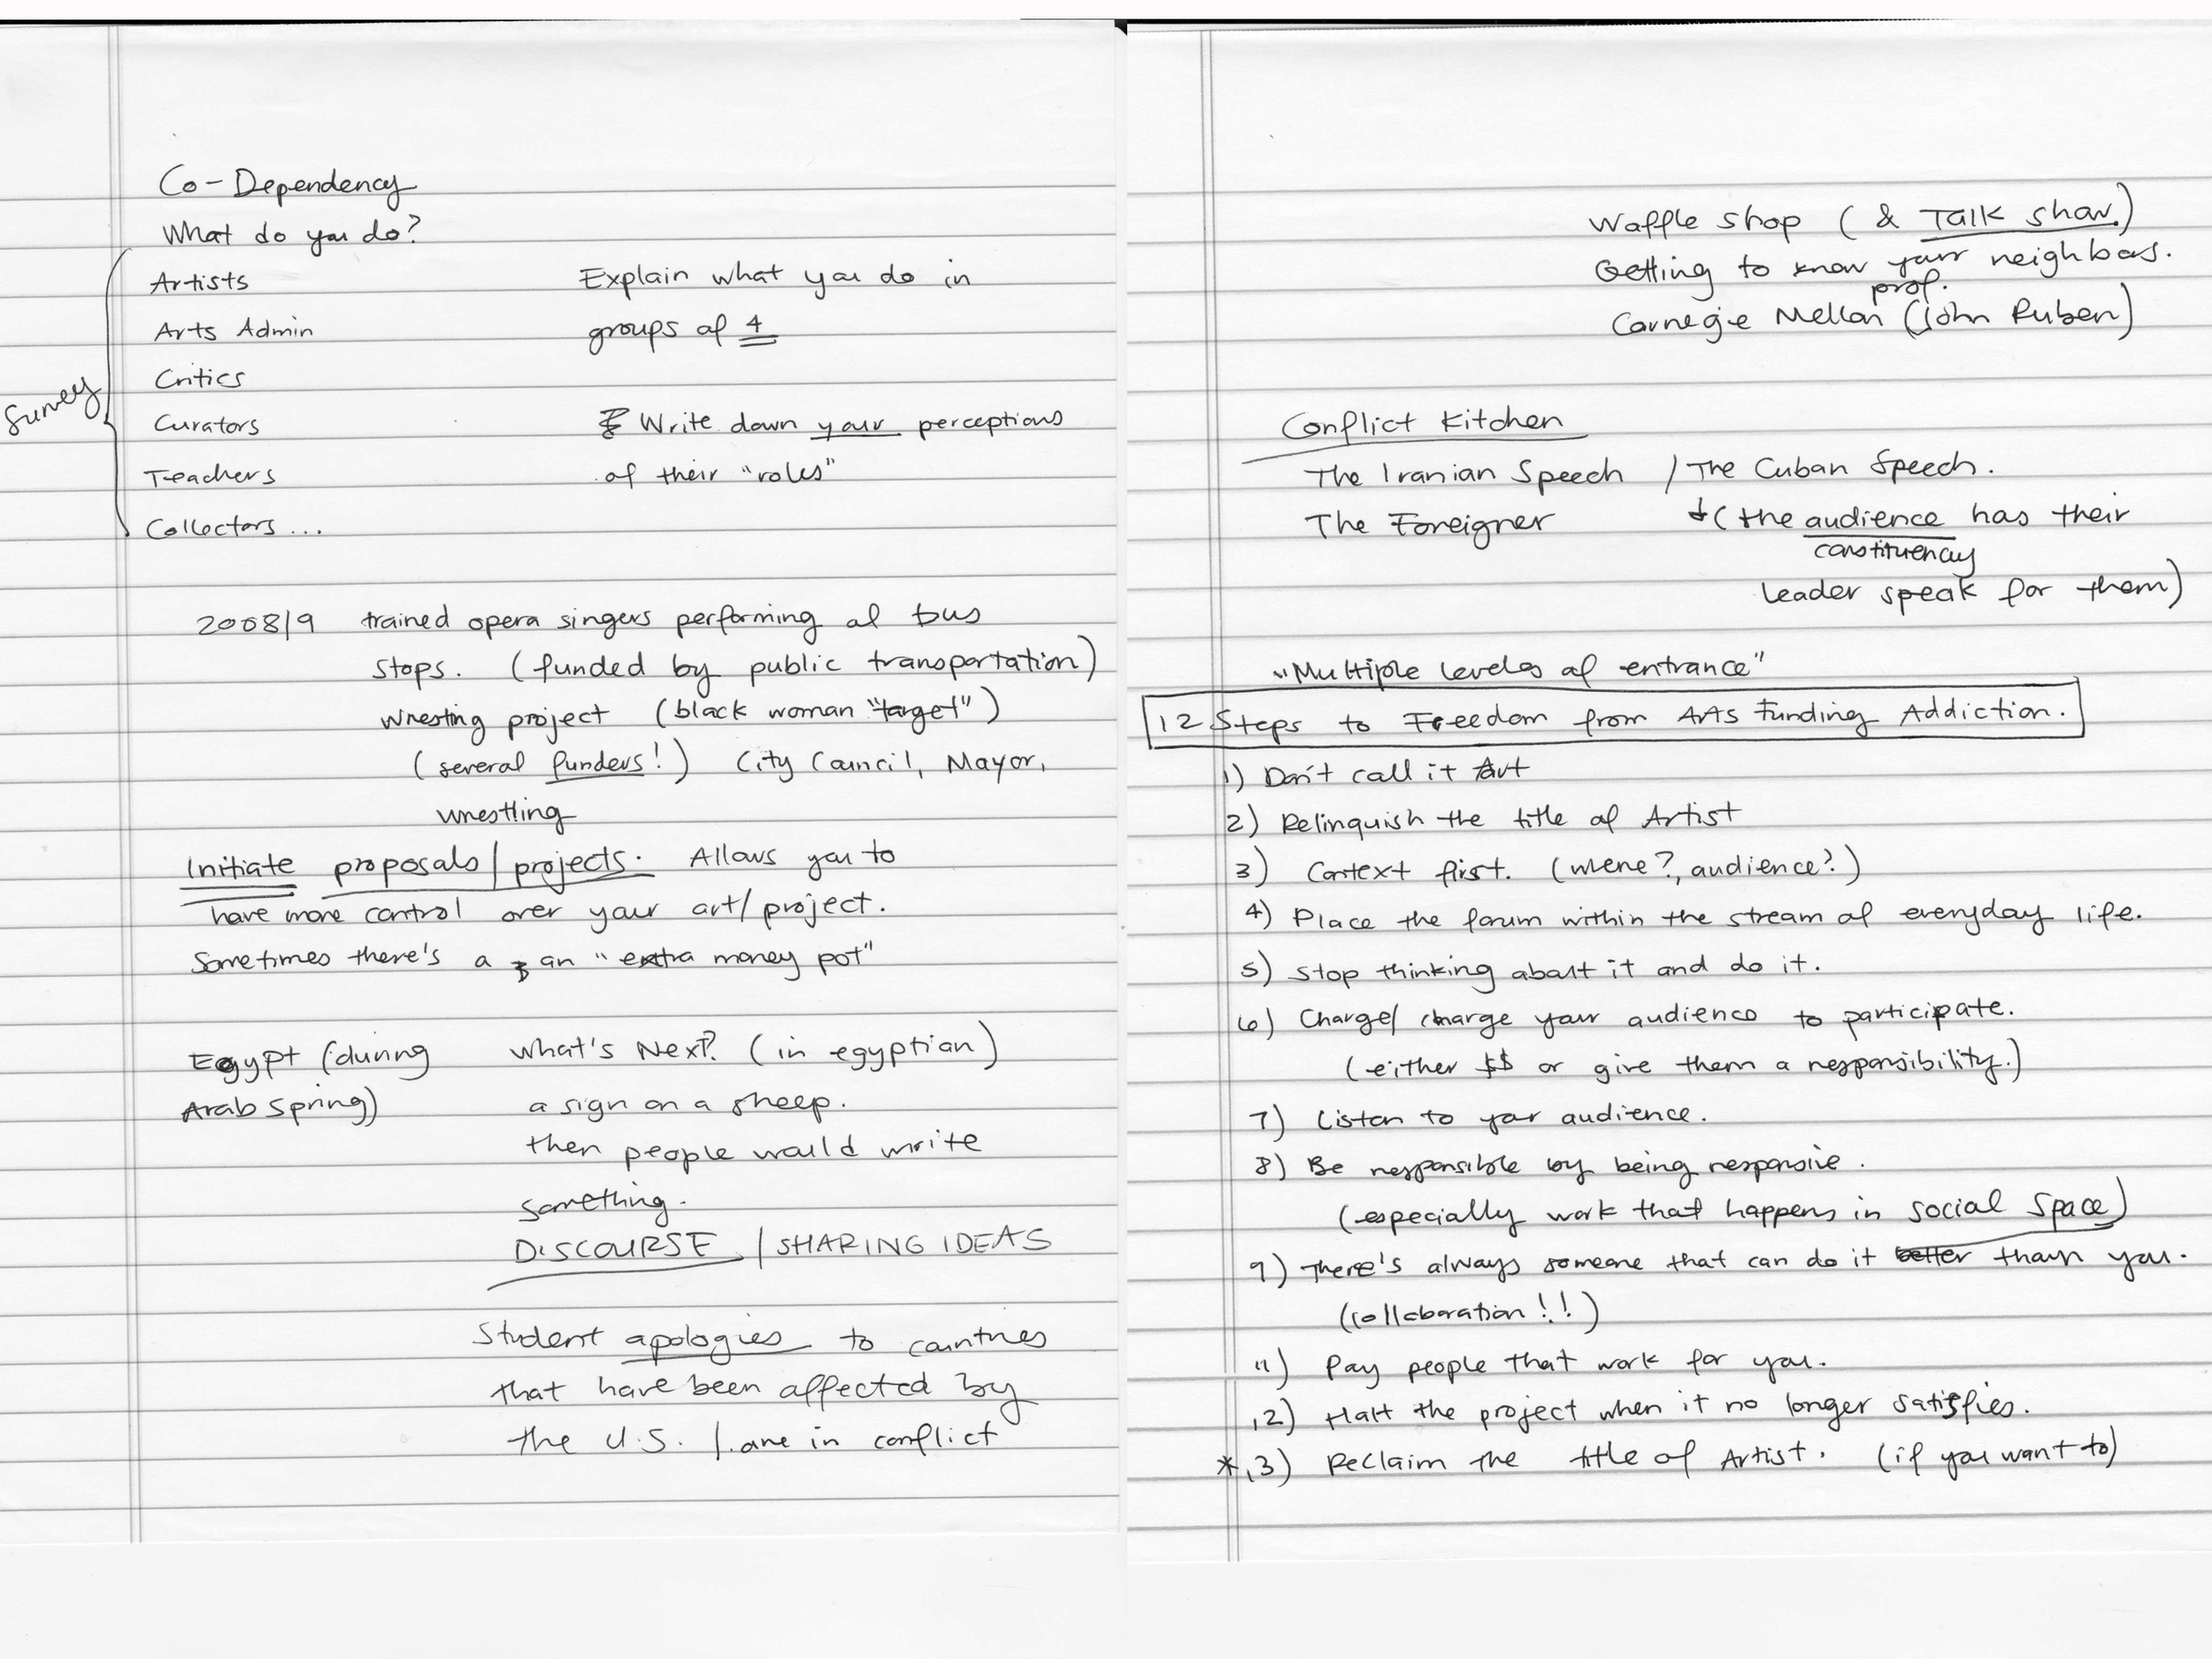 Co-Dependency
What do you do?
Survey
Artists
Arts Admin
Critics
Curators
Teachers
Collectors...
Explain what you do in
groups of 4
Write down your perceptions
of their "roles"
2008/9 trained opera singers performing at bus
stops. (funded by public transportation)
Wresting project (black woman "target")
(several funders!) City Council, Mayor,
wrestling
Initiate proposals/projects. Allows you to
have more control over your art/project.
Sometimes there's a an "extra money pot"
Egypt (during
Arab Spring)
What's Next? (in egyptian)
a sign on a sheep.
then people would write
something.
DISCOURSE / SHARING IDEAS
Student apologies to countries
that have been affected by
the U.S. / are in conflict
Waffle shop (& Talk show.)
Getting to know your neighbors.
prof.
Carnegie Mellon (John Ruben)
Conflict Kitchen
The Iranian Speech / The Cuban Speech.
The Foreigner (the audience has their
constituency
leader speak for them)
"Multiple levels of entrance"
12 Steps to Freedom from Arts Funding Addiction.
1) Don't call it Art
2) Relinquish the title of Artist
3) Context first. (where?, audience?)
4) Place the forum within the stream of everyday life.
5) Stop thinking about it and do it.
6) Charge/ charge your audience to participate.
(either $$ or give them a responsibility.)
7) Listen to your audience.
8) Be responsible by being responsive.
(especially work that happens in social space)
9) There's always someone that can do it better than you.
(collaboration!!)
11) Pay people that work for you.
12) Halt the project when it no longer satisfies.
*13) Reclaim the title of Artist. (if you want to)